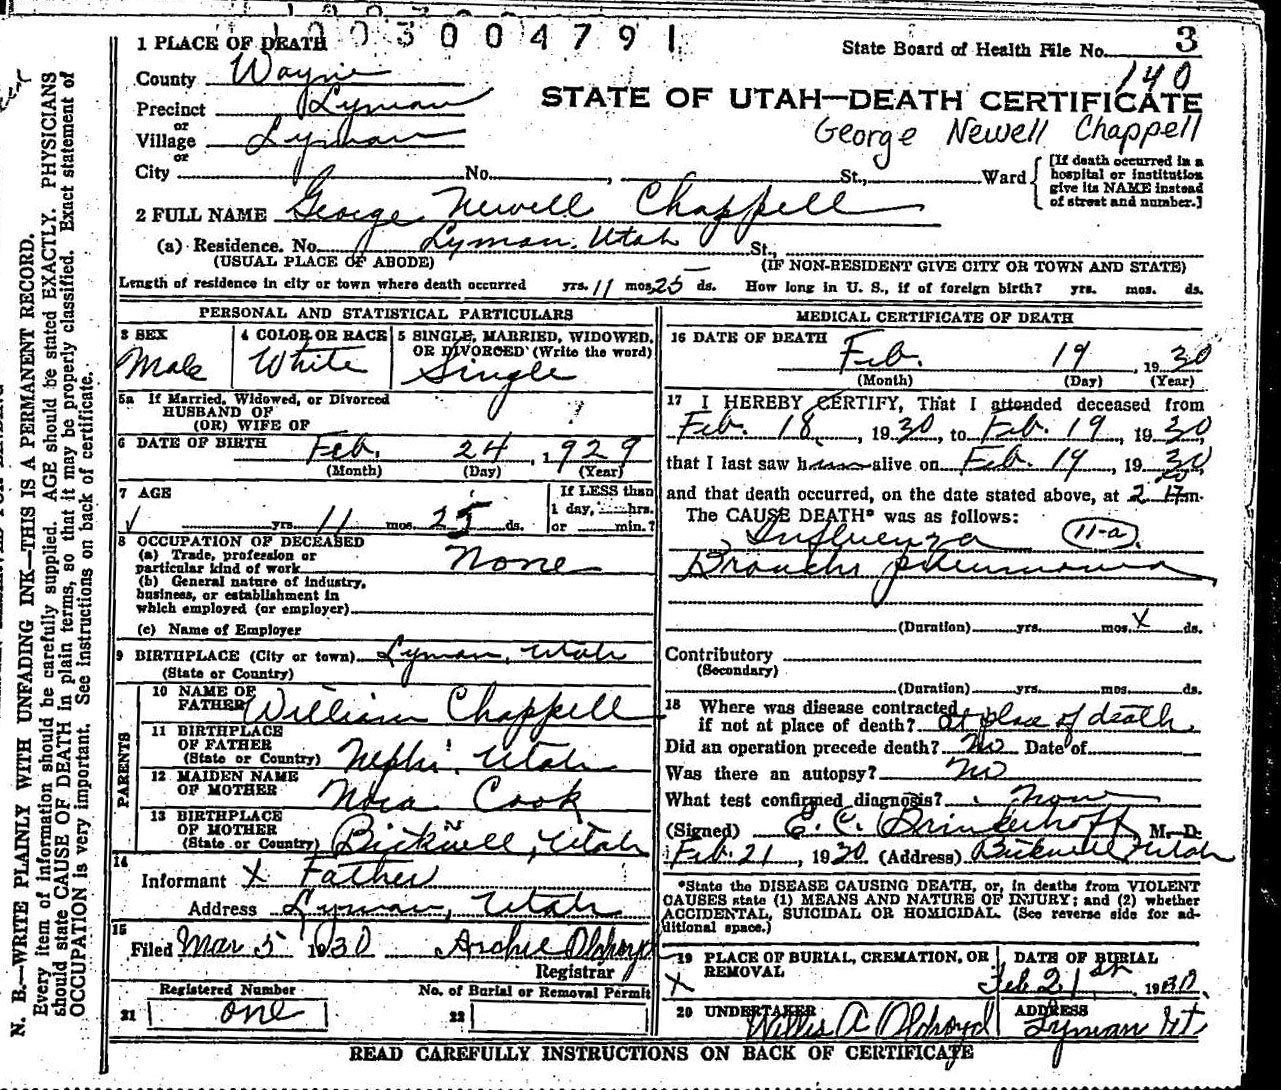 1003004791
State Board of Health File No. 3
140
STATE OF UTAH—DEATH CERTIFICATE
George Newell Chappell
1 PLACE OF DEATH
County Wayne
Precinct Lyman
or
Village Lyman
or
City No. , St., Ward
[If death occurred in a
hospital or institution
give its NAME instead
of street and number.]
2 FULL NAME George Newell Chappell
(a) Residence. No. Lyman, Utah St.,
(USUAL PLACE OF ABODE) (IF NON-RESIDENT GIVE CITY OR TOWN AND STATE)
Length of residence in city or town where death occurred yrs. 11 mos. 25 ds. How long in U. S., if of foreign birth? yrs. mos. ds.
PERSONAL AND STATISTICAL PARTICULARS
3 SEX 4 COLOR OR RACE 5 SINGLE, MARRIED, WIDOWED,
OR DIVORCED (Write the word)
Male White Single
5a If Married, Widowed, or Divorced
HUSBAND OF
(OR) WIFE OF
6 DATE OF BIRTH Feb. 24, 1929
(Month) (Day) (Year)
7 AGE If LESS than
1 day, hrs.
or min.?
yrs. 11 mos. 25 ds.
8 OCCUPATION OF DECEASED
(a) Trade, profession or
particular kind of work None
(b) General nature of industry,
business, or establishment in
which employed (or employer)
(c) Name of Employer
9 BIRTHPLACE (City or town) Lyman, Utah
(State or Country)
PARENTS
10 NAME OF
FATHER William Chappell
11 BIRTHPLACE
OF FATHER
(State or Country) Nephi, Utah
12 MAIDEN NAME
OF MOTHER Nora Cook
13 BIRTHPLACE
OF MOTHER
(State or Country) Bicknell, Utah
14
Informant X Father
Address Lyman, Utah
15
Filed Mar 5 1930 Archie Oldroyd
Registrar
Registered Number No. of Burial or Removal Permit
21 one 22
MEDICAL CERTIFICATE OF DEATH
16 DATE OF DEATH
Feb. 19, 1930
(Month) (Day) (Year)
17 I HEREBY CERTIFY, That I attended deceased from
Feb. 18, 1930, to Feb. 19 1930
that I last saw him alive on Feb. 19, 1930
and that death occurred, on the date stated above, at 2 m.
The CAUSE DEATH* was as follows:
Influenza 11-a
Broncho pneumonia
(Duration) yrs. mos. X ds.
Contributory
(Secondary)
(Duration) yrs. mos. ds.
18 Where was disease contracted
if not at place of death? At place of death
Did an operation precede death? No Date of
Was there an autopsy? No
What test confirmed diagnosis? None
(Signed) E. C. Brinkerhoff M. D.
Feb. 21, 1930 (Address) Bicknell Utah
*State the DISEASE CAUSING DEATH, or, in deaths from VIOLENT
CAUSES state (1) MEANS AND NATURE OF INJURY; and (2) whether
ACCIDENTAL, SUICIDAL OR HOMICIDAL. (See reverse side for ad-
ditional space.)
19 PLACE OF BURIAL, CREMATION, OR
REMOVAL
X
DATE OF BURIAL
Feb 21st, 1930
20 UNDERTAKER ADDRESS
Willis A Oldroyd Lyman Ut
READ CAREFULLY INSTRUCTIONS ON BACK OF CERTIFICATE
N. B.—WRITE PLAINLY WITH UNFADING INK—THIS IS A PERMANENT RECORD.
Every item of information should be carefully supplied. AGE should be stated EXACTLY. PHYSICIANS
should state CAUSE OF DEATH in plain terms, so that it may be properly classified. Exact statement of
OCCUPATION is very important. See instructions on back of certificate.